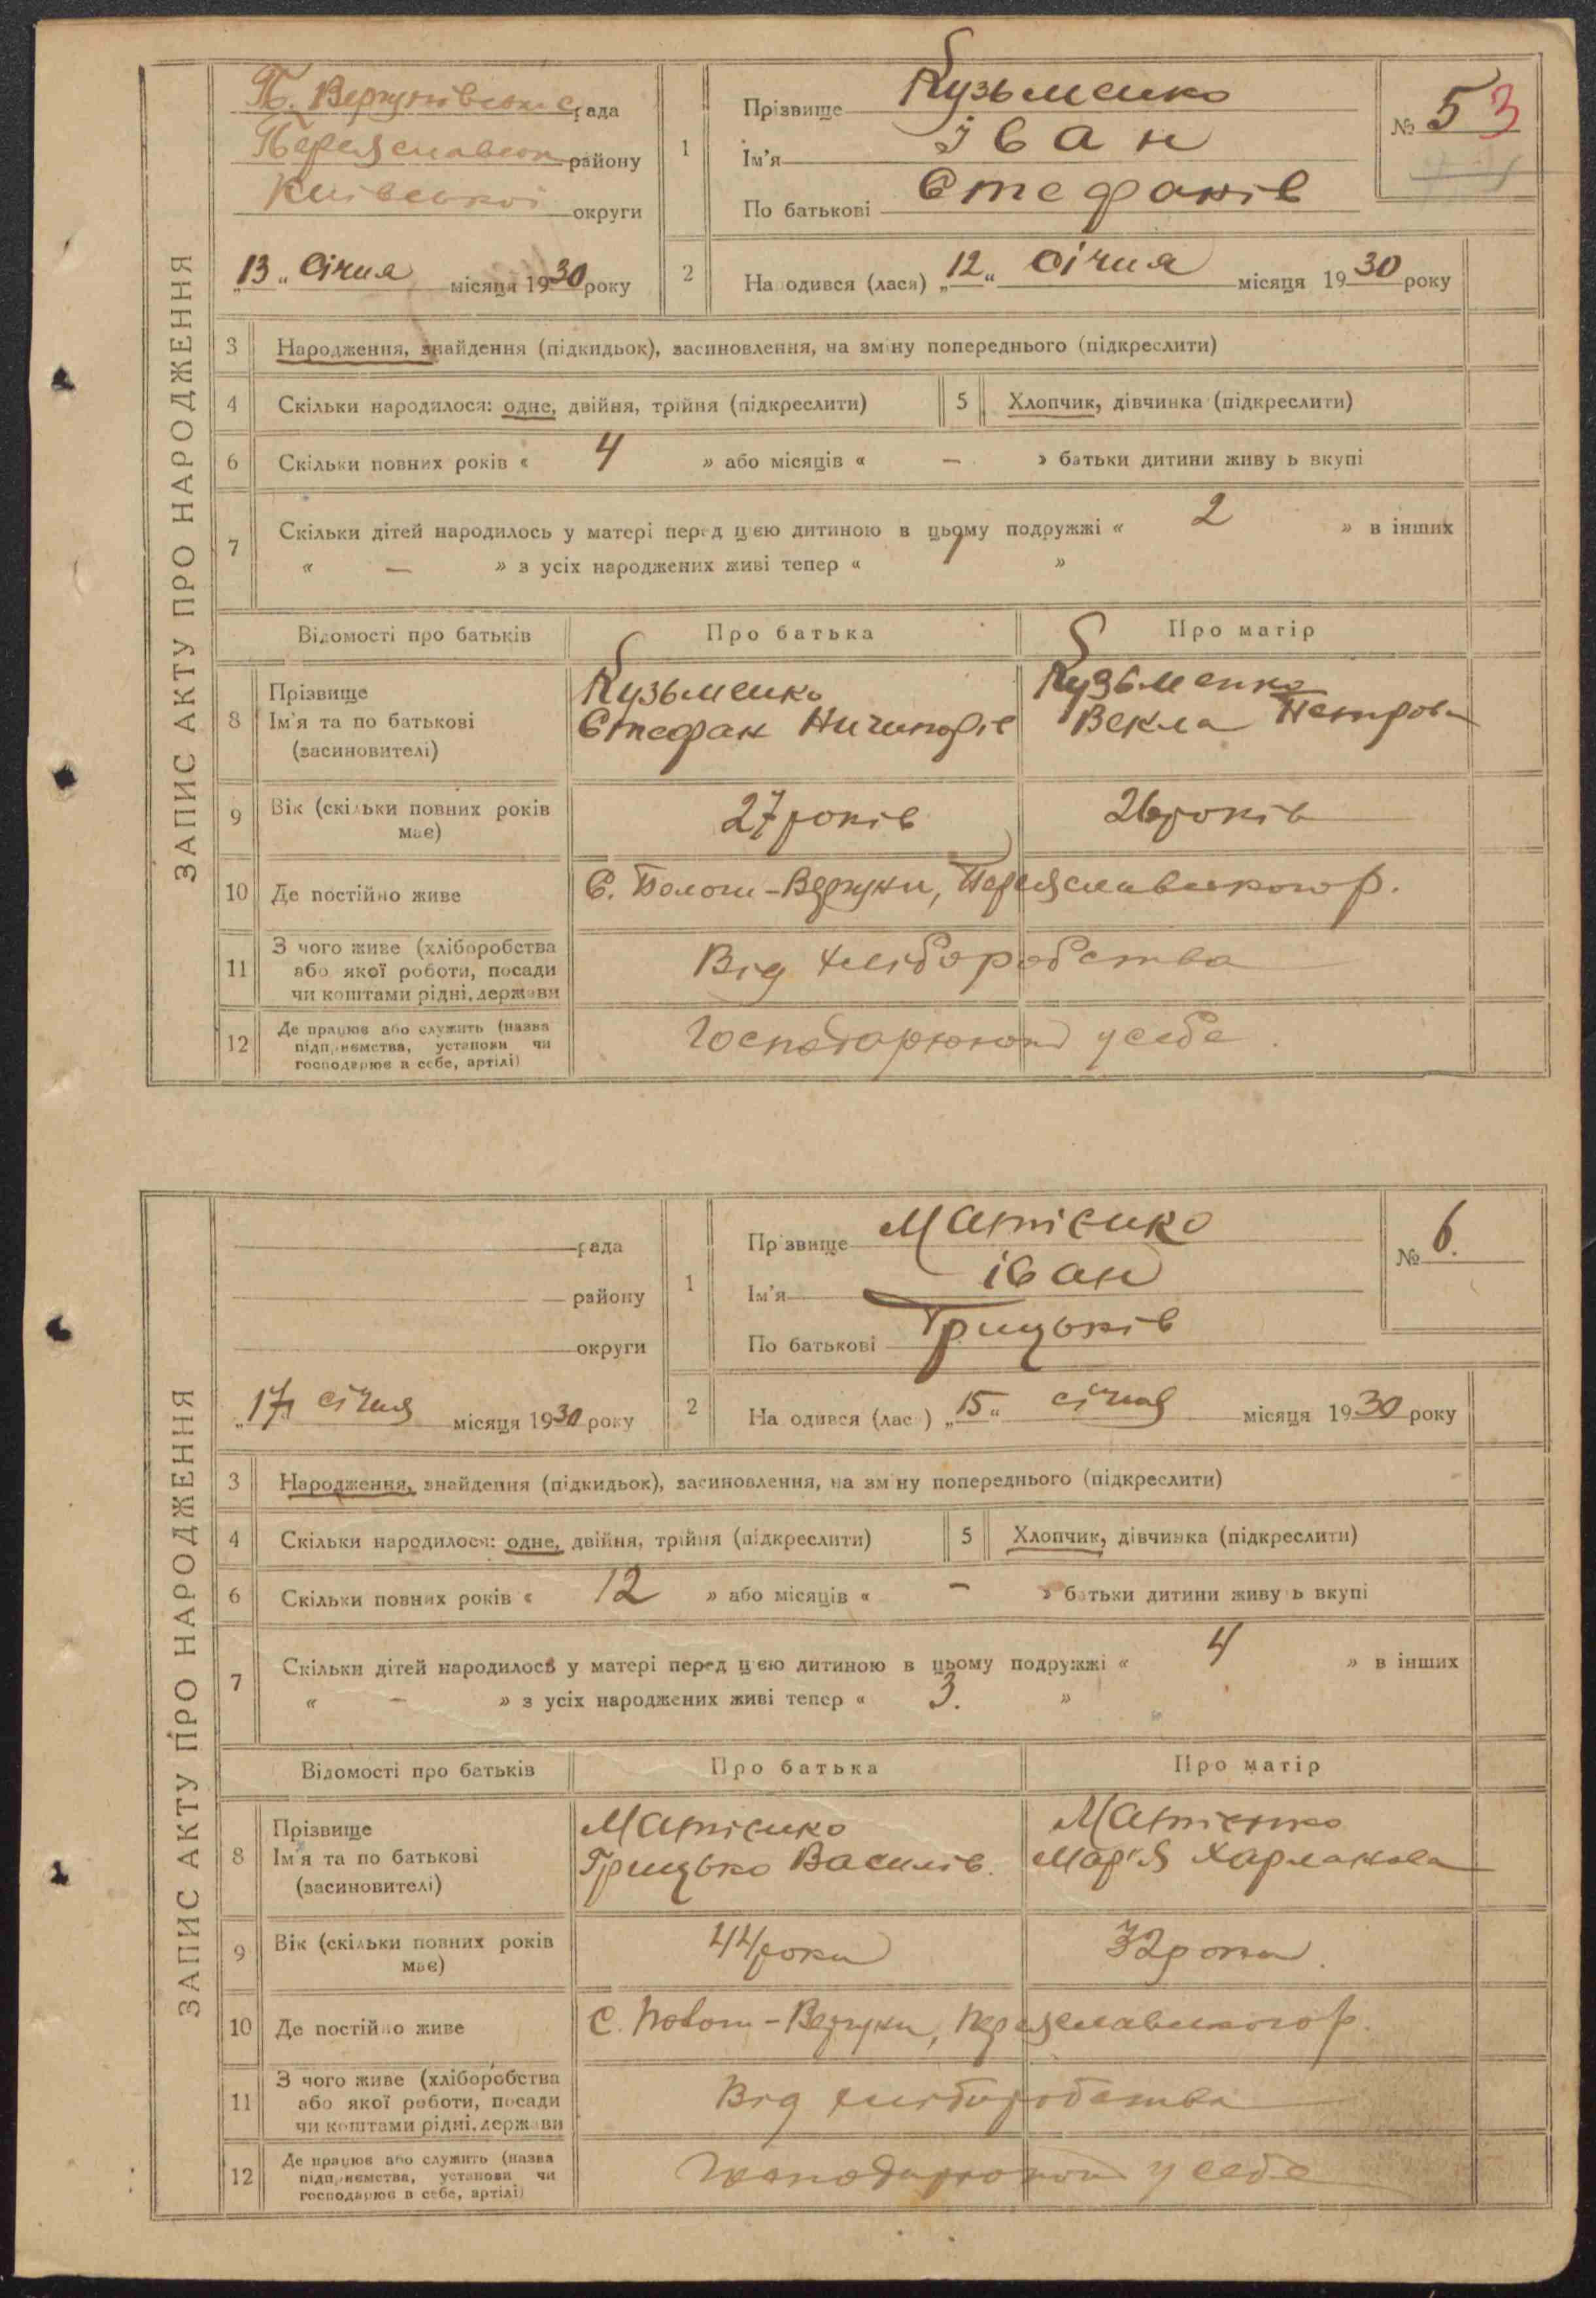 ЗАПИС АКТУ ПРО НАРОДЖЕННЯ
П. Вергунівська рада
Переяславськ району
Київської округи
„13“ Січня місяця 1930 року
1 Прізвище Кузьменко
Ім'я Іван
По батькові Стефанів
№ 5 3
2 Народився (лася) „12“ січня місяця 1930 року
3 Народження, знайдення (підкидьок), засиновлення, на зміну попереднього (підкреслити)
4 Скільки народилося: одне, двійня, трійня (підкреслити) 5 Хлопчик, дівчинка (підкреслити)
6 Скільки повних років « 4 » або місяців « — » батьки дитини живуть вкупі
7 Скільки дітей народилось у матері перед цією дитиною в цьому подружжі « 2 » в інших
« — » з усіх народжених живі тепер « 1 »
Відомості про батьків Про батька Про матір
8 Прізвище
Ім'я та по батькові
(засиновителі)
Кузьменко
Стефан Ничипорів
Кузьменко
Векла Петрова
9 Вік (скільки повних років
має)
27 років 26 років
10 Де постійно живе С. Пологи-Вергуни, Переяславського р.
11 З чого живе (хліборобства
або якої роботи, посади
чи коштами рідні, держави
Від хліборобства
12 Де працює або служить (назва
підприємства, установи чи
господарює в себе, артілі)
Господарюют у себе.
ЗАПИС АКТУ ПРО НАРОДЖЕННЯ
рада
району
округи
„17“ січня місяця 1930 року
1 Прізвище Матієнко
Ім'я Іван
По батькові Грицьків
№ 6.
2 Народився (лася) „15“ січня місяця 1930 року
3 Народження, знайдення (підкидьок), засиновлення, на зміну попереднього (підкреслити)
4 Скільки народилося: одне, двійня, трійня (підкреслити) 5 Хлопчик, дівчинка (підкреслити)
6 Скільки повних років « 12 » або місяців « — » батьки дитини живуть вкупі
7 Скільки дітей народилось у матері перед цією дитиною в цьому подружжі « 4 » в інших
« — » з усіх народжених живі тепер « 3. »
Відомості про батьків Про батька Про матір
8 Прізвище
Ім'я та по батькові
(засиновителі)
Матієнко
Грицько Василів.
Матієнко
Мар'я Харлакова
9 Вік (скільки повних років
має)
44 роки 32 роки.
10 Де постійно живе С. Пологи-Вергуни, Переяславського р.
11 З чого живе (хліборобства
або якої роботи, посади
чи коштами рідні, держави
Від хліборобства
12 Де працює або служить (назва
підприємства, установи чи
господарює в себе, артілі)
у себе